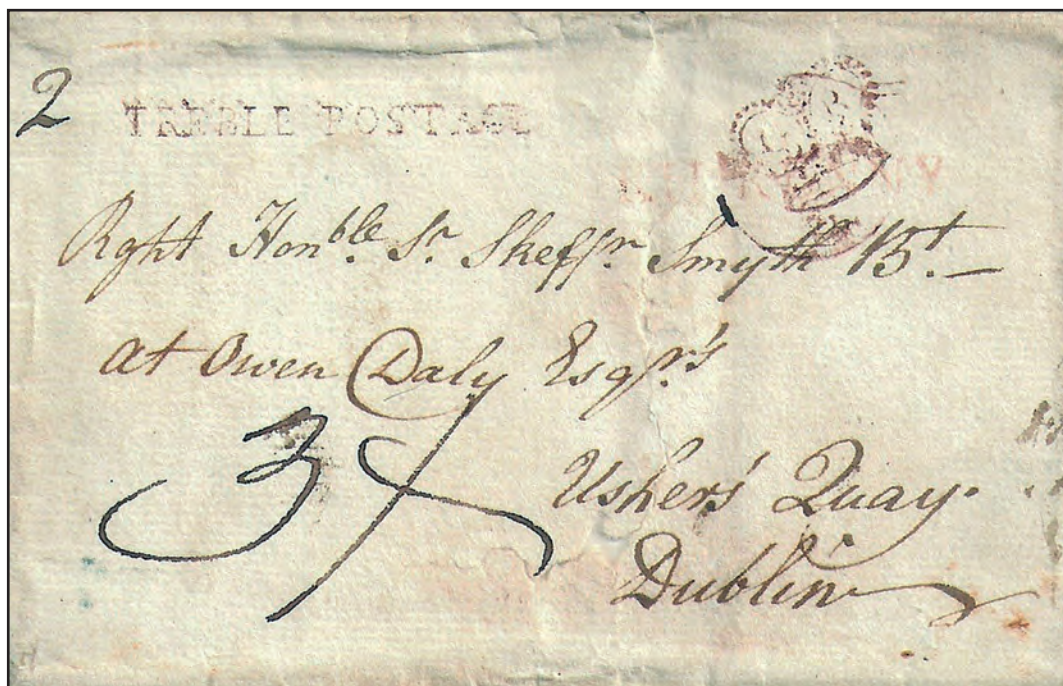 2
TREBLE POSTAGE
Rght Honble. Sr. Skeffn. Smyth Bt.—
at Owen Daly Esqrs
3/
Ushers Quay.
Dublin